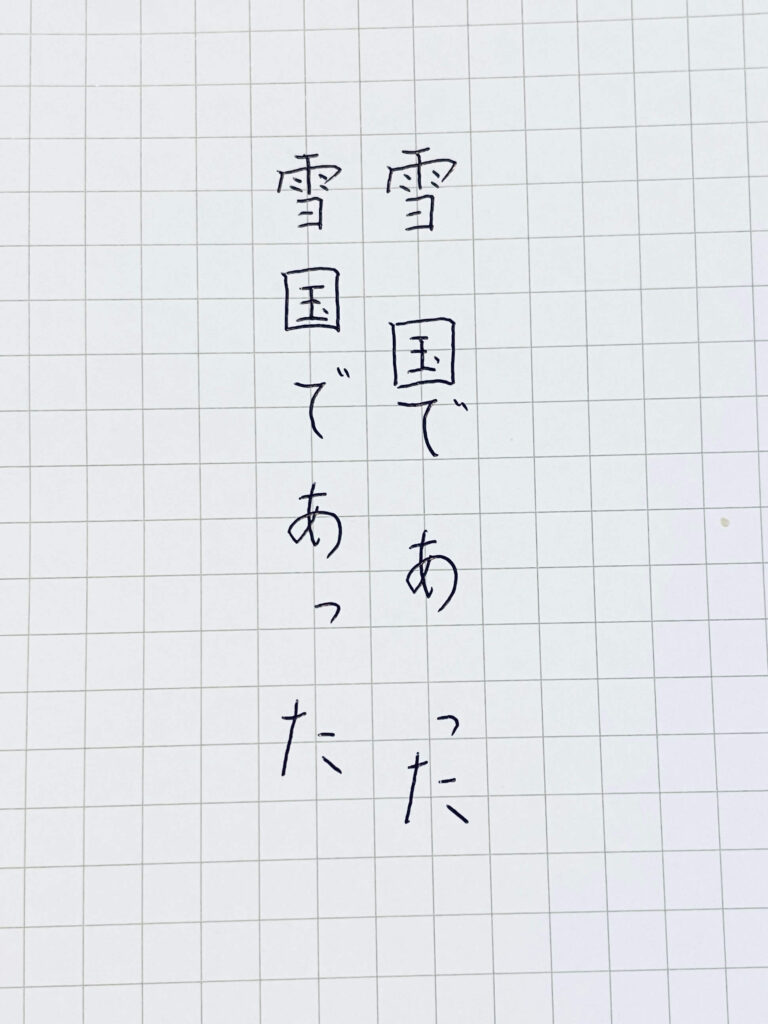 雪国であった
雪国であった